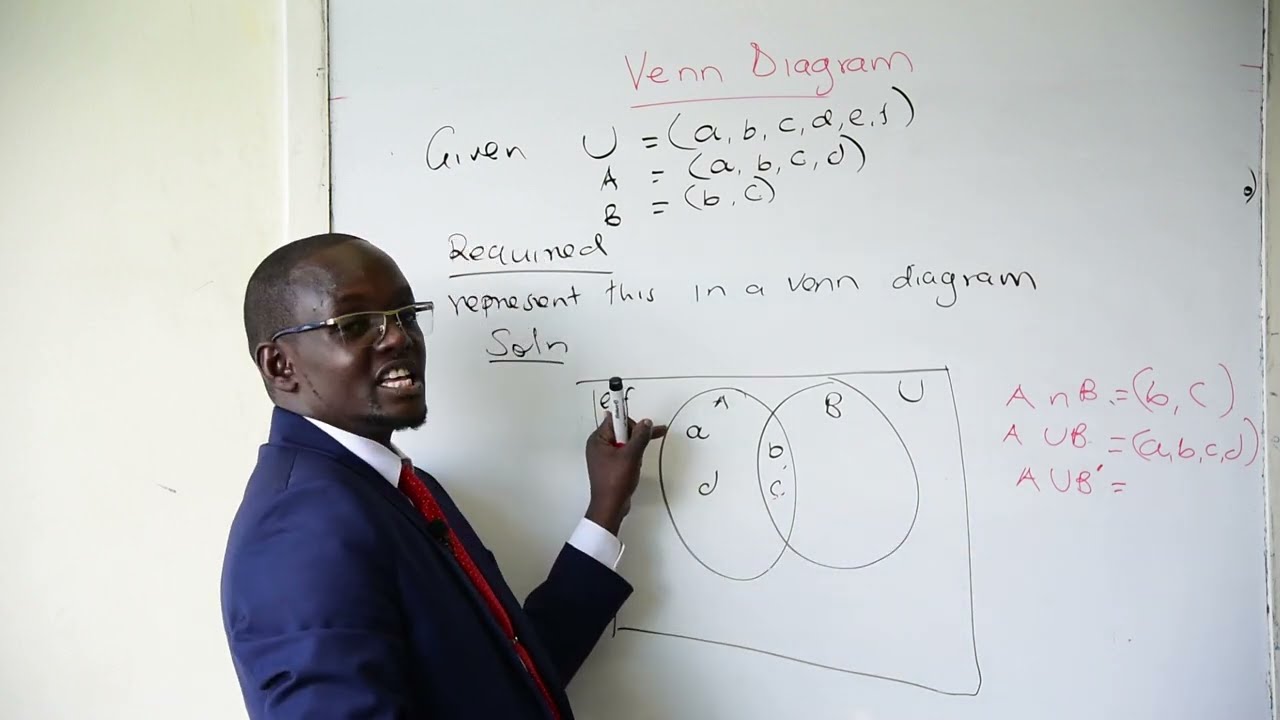 Venn Diagram
Given U = (a, b, c, d, e, f)
A = (a, b, c, d)
B = (b, c)
Required
represent this in a venn diagram
Soln
e f
A
B
U
a
b
d
c
A n B = (b, c)
A U B = (a, b, c, d)
A U B' =